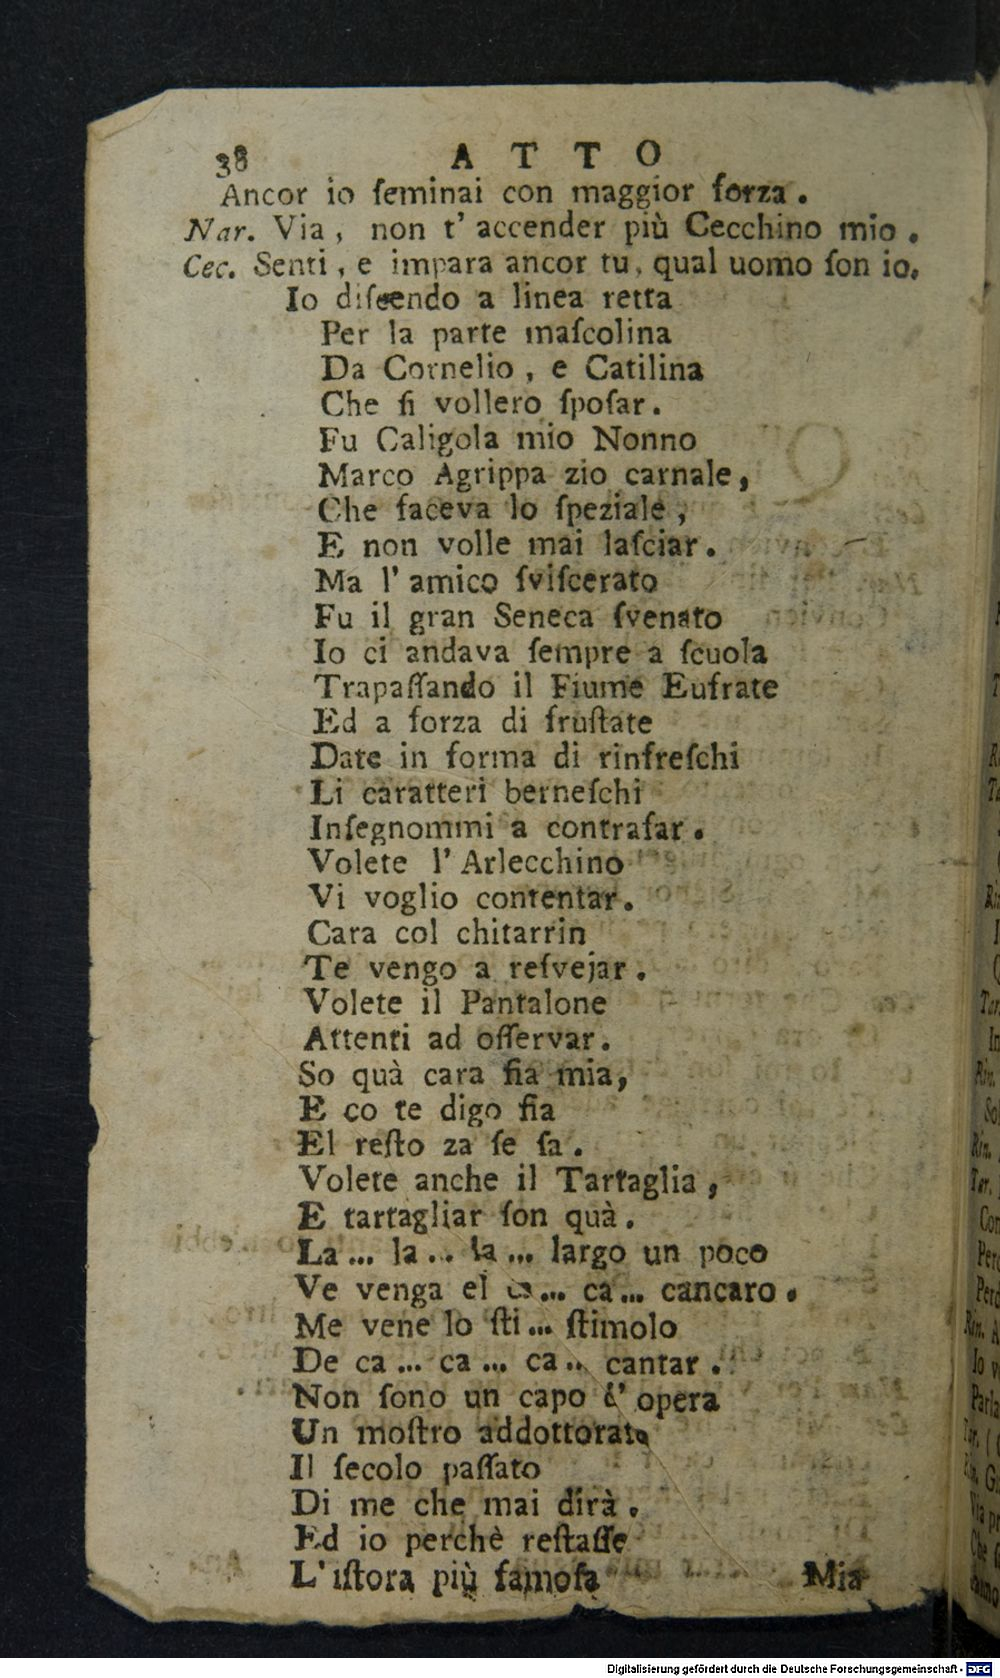 38 ATTO
Ancor io ſeminai con maggior forza.
Nar. Via, non t' accender più Cecchino mio.
Cec. Senti, e impara ancor tu, qual uomo ſon io.
Io diſcendo a linea retta
Per la parte maſcolina
Da Cornelio, e Catilina
Che ſi vollero ſpoſar.
Fu Caligola mio Nonno
Marco Agrippa zio carnale,
Che faceva lo ſpeziale,
E non volle mai laſciar.
Ma l' amico ſviſcerato
Fu il gran Seneca ſvenato
Io ci andava ſempre a ſcuola
Trapaſſando il Fiume Eufrate
Ed a forza di fruſtate
Date in forma di rinfreſchi
Li caratteri berneſchi
Inſegnommi a contrafar.
Volete l' Arlecchino
Vi voglio contentar.
Cara col chitarrin
Te vengo a reſvejar.
Volete il Pantalone
Attenti ad oſſervar.
So quà cara fia mia,
E co te digo fia
El reſto za ſe ſa.
Volete anche il Tartaglia,
E tartagliar ſon quà.
La... la.. la... largo un poco
Ve venga el ca... ca... cancaro.
Me vene lo ſti... ſtimolo
De ca... ca... ca.. cantar.
Non ſono un capo d' opera
Un moſtro addottorato
Il ſecolo paſſato
Di me che mai dirà.
Ed io perchè reſtaſſe
L' iſtora più famoſa Mia
Digitalisierung gefördert durch die Deutsche Forschungsgemeinschaft - DFG